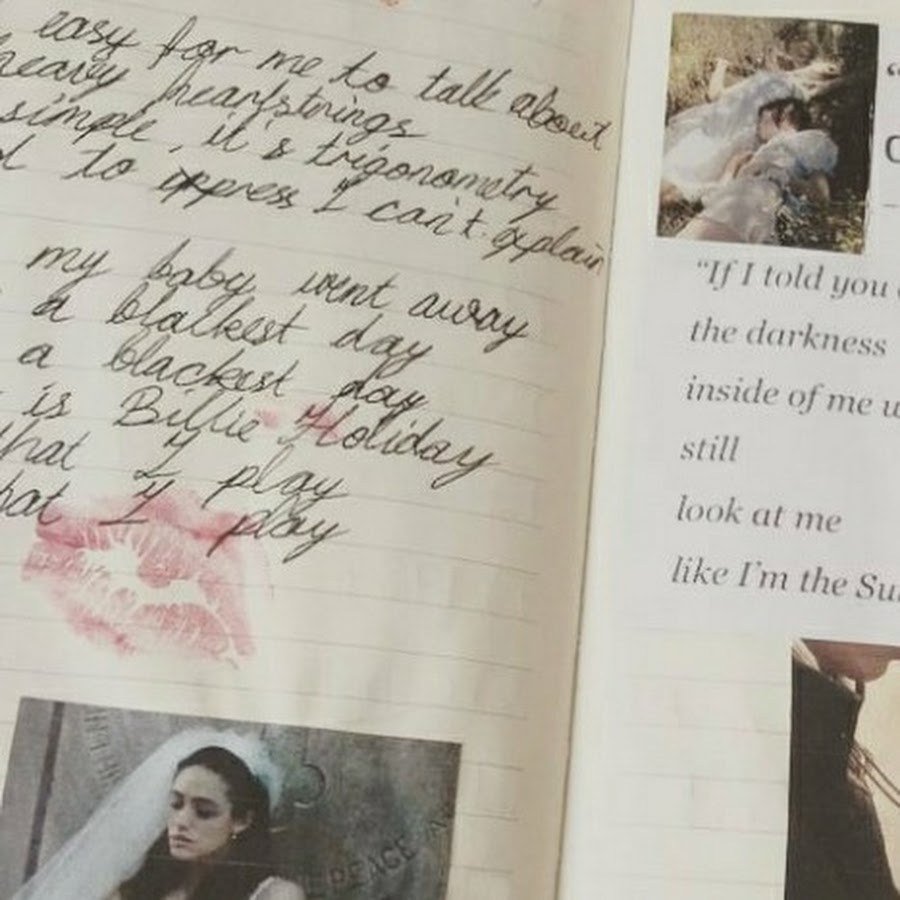 easy for me to talk about
heavy heartstrings
simple, it's trigonometry
to express I can't explain
my baby went away
a blalkest day
a blackest day
is Billie Holiday
that I play
I play
"If I told you
the darkness
inside of me
still
look at me
like I'm the
PEACE